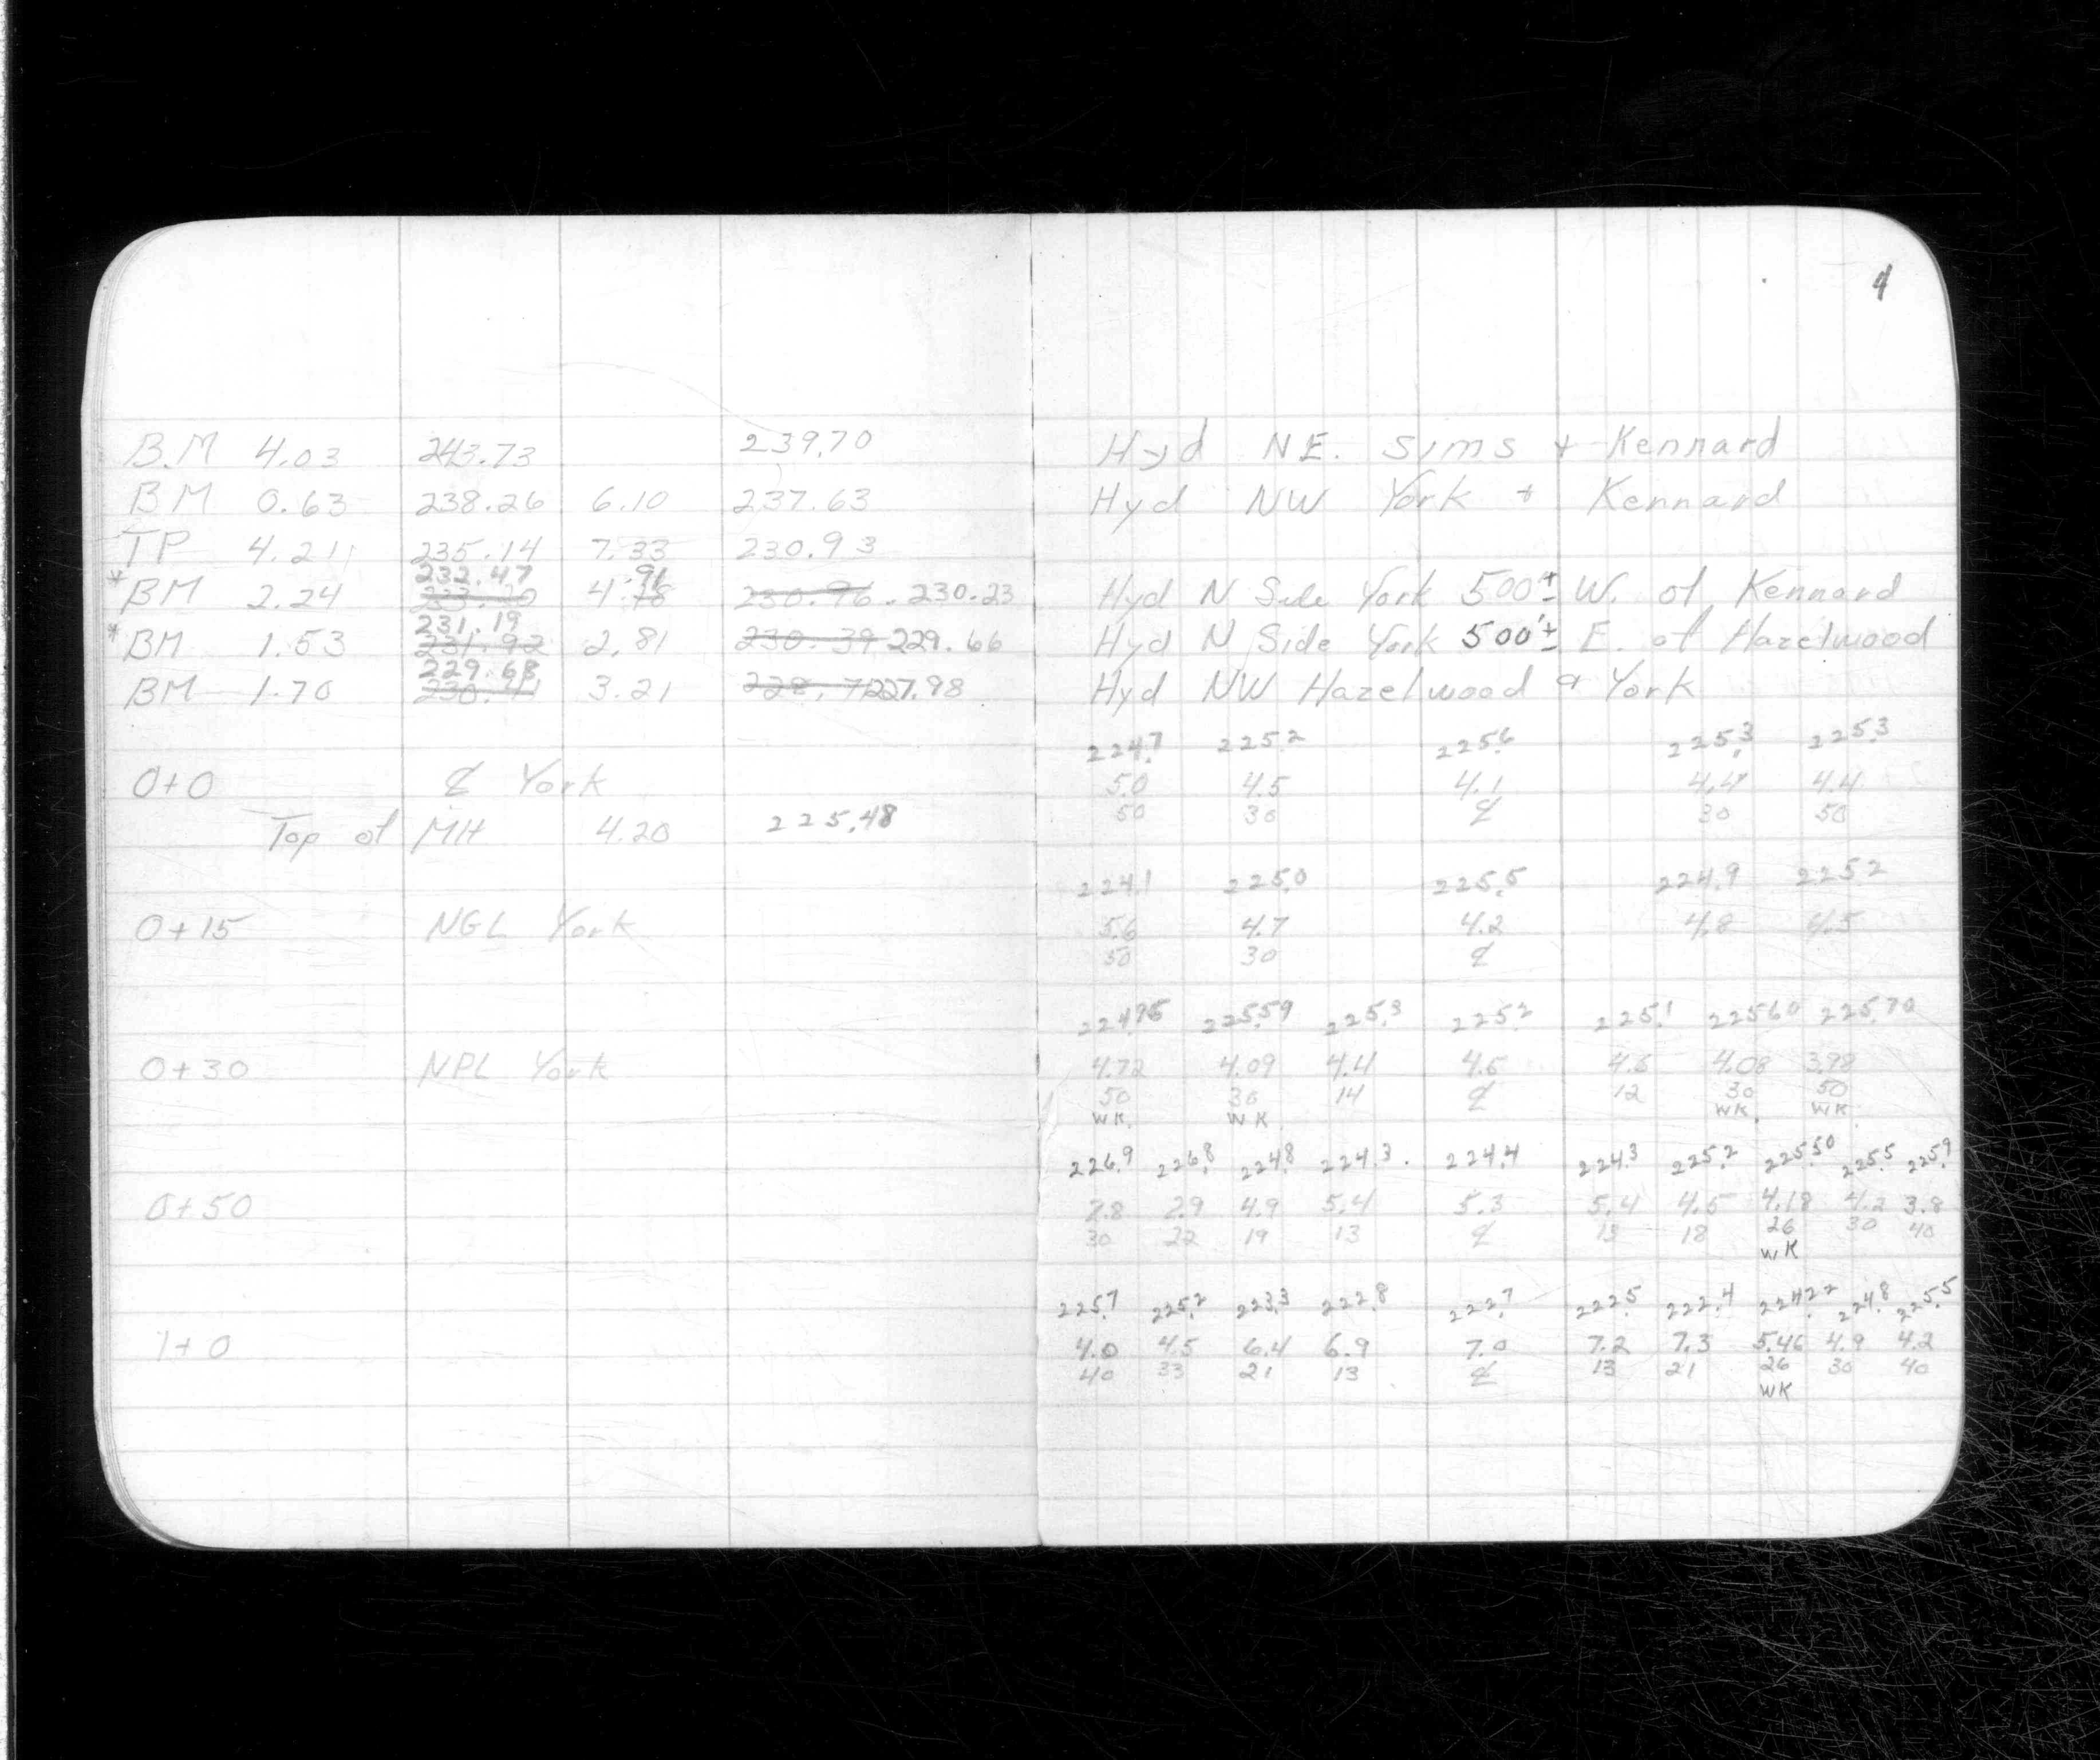 4
B.M 4.03 243.73 239.70 Hyd NE. Sims + Kennard
BM 0.63 238.26 6.10 237.63 Hyd NW York + Kennard
TP 4.21 235.14 7.33 230.93
232.47 .91
*BM 2.24 4. 230.96 . 230.23 Hyd N Side York 500'± W. of Kennard
231.19
*BM 1.53 231.92 2.81 230.39 229.66 Hyd N Side York 500'± E. of Hazelwood
229.68
BM 1.70 3.21 227.98 Hyd NW Hazelwood & York
224.7 225.2 225.6 225.3 225.3
0+0 ℄ York 5.0 4.5 4.1 4.4 4.4
50 30 ℄ 30 50
Top of MH 4.20 225.48
224.1 225.0 225.5 224.9 225.2
0+15 NGL York 5.6 4.7 4.2 4.8 4.5
50 30 ℄
224.96 225.59 225.3 225.2 225.1 225.60 225.70
0+30 NPL York 4.72 4.09 4.4 4.5 4.6 4.08 3.98
50 30 14 ℄ 12 30 50
WK. WK WK. WK.
226.9 226.8 224.8 224.3. 224.4 224.3 225.2 225.50 225.5 225.9
0+50 2.8 2.9 4.9 5.4 5.3 5.4 4.5 4.18 4.2 3.8
30 22 19 13 ℄ 13 18 26 30 40
WK
225.7 225.2 223.3 222.8 222.7 222.5 222.4 224.22 224.8 225.5
1+0 4.0 4.5 6.4 6.9 7.0 7.2 7.3 5.46 4.9 4.2
40 33 21 13 ℄ 13 21 26 30 40
WK